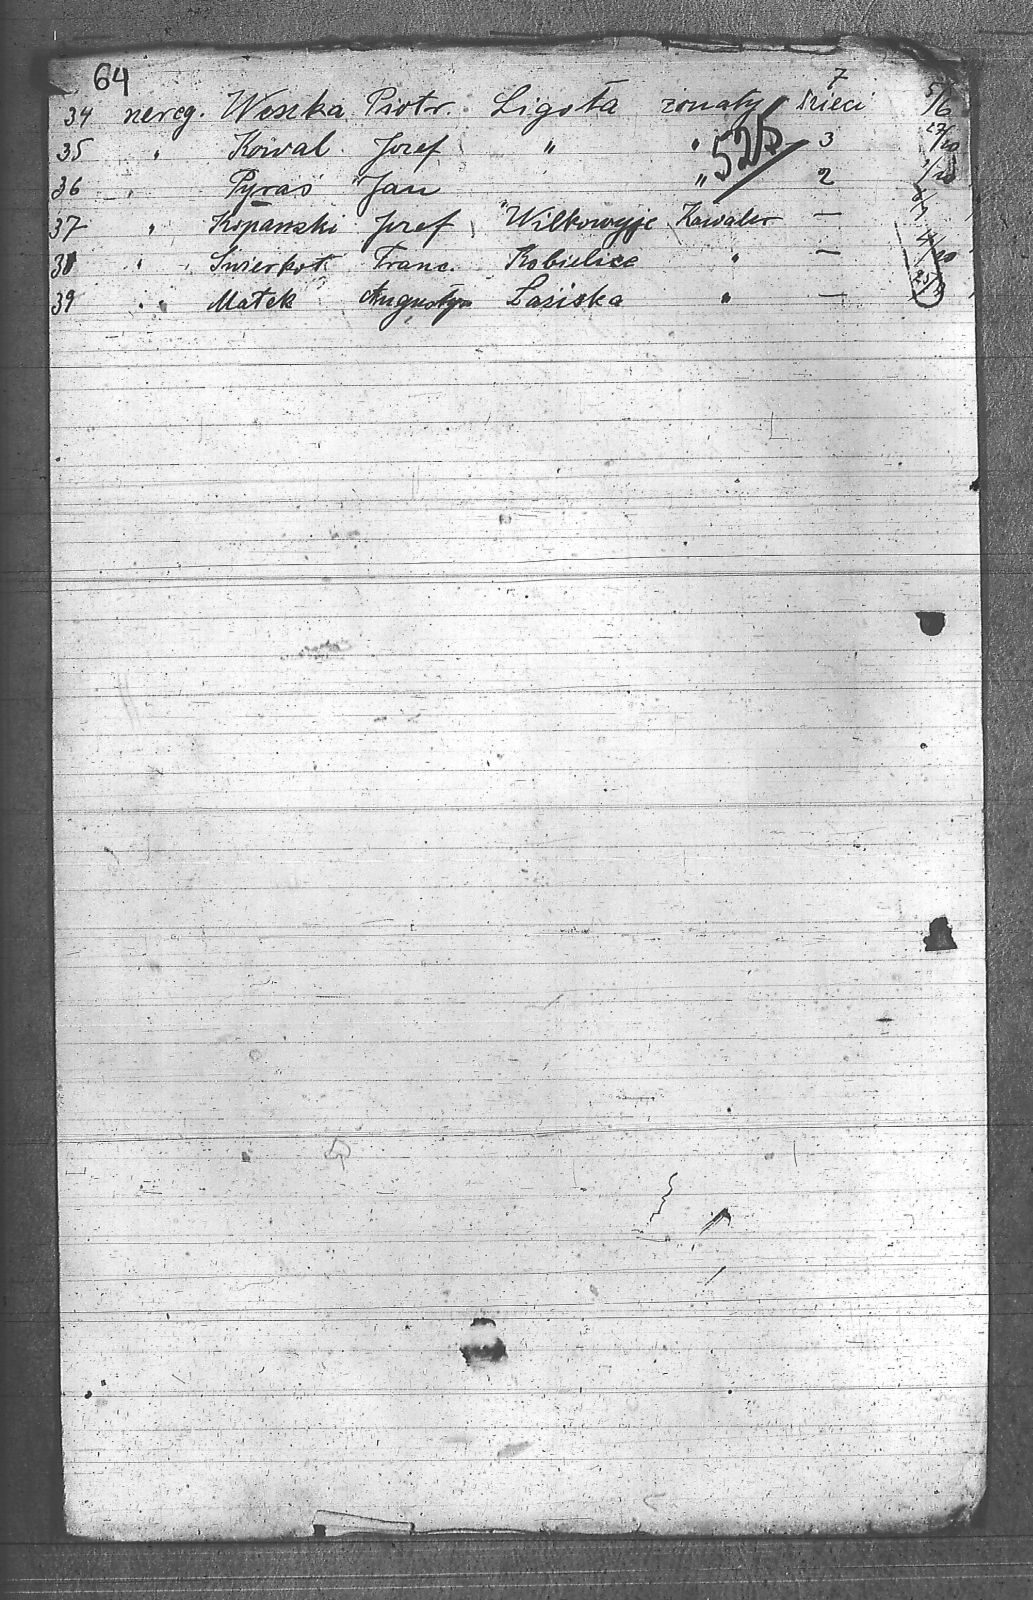 64
34 nereg. Woszka Piotr. Ligota żonaty 7 dzieci 5/6
35 " Kowal Jozef " " 3
525
36 " Pyraś Jan " 2
37 " Kopanski Jozef Wilkowyje Kawaler —
38 " Swierkot Franc. Kobielice " —
39 " Matek Augustyn Łaziska " —